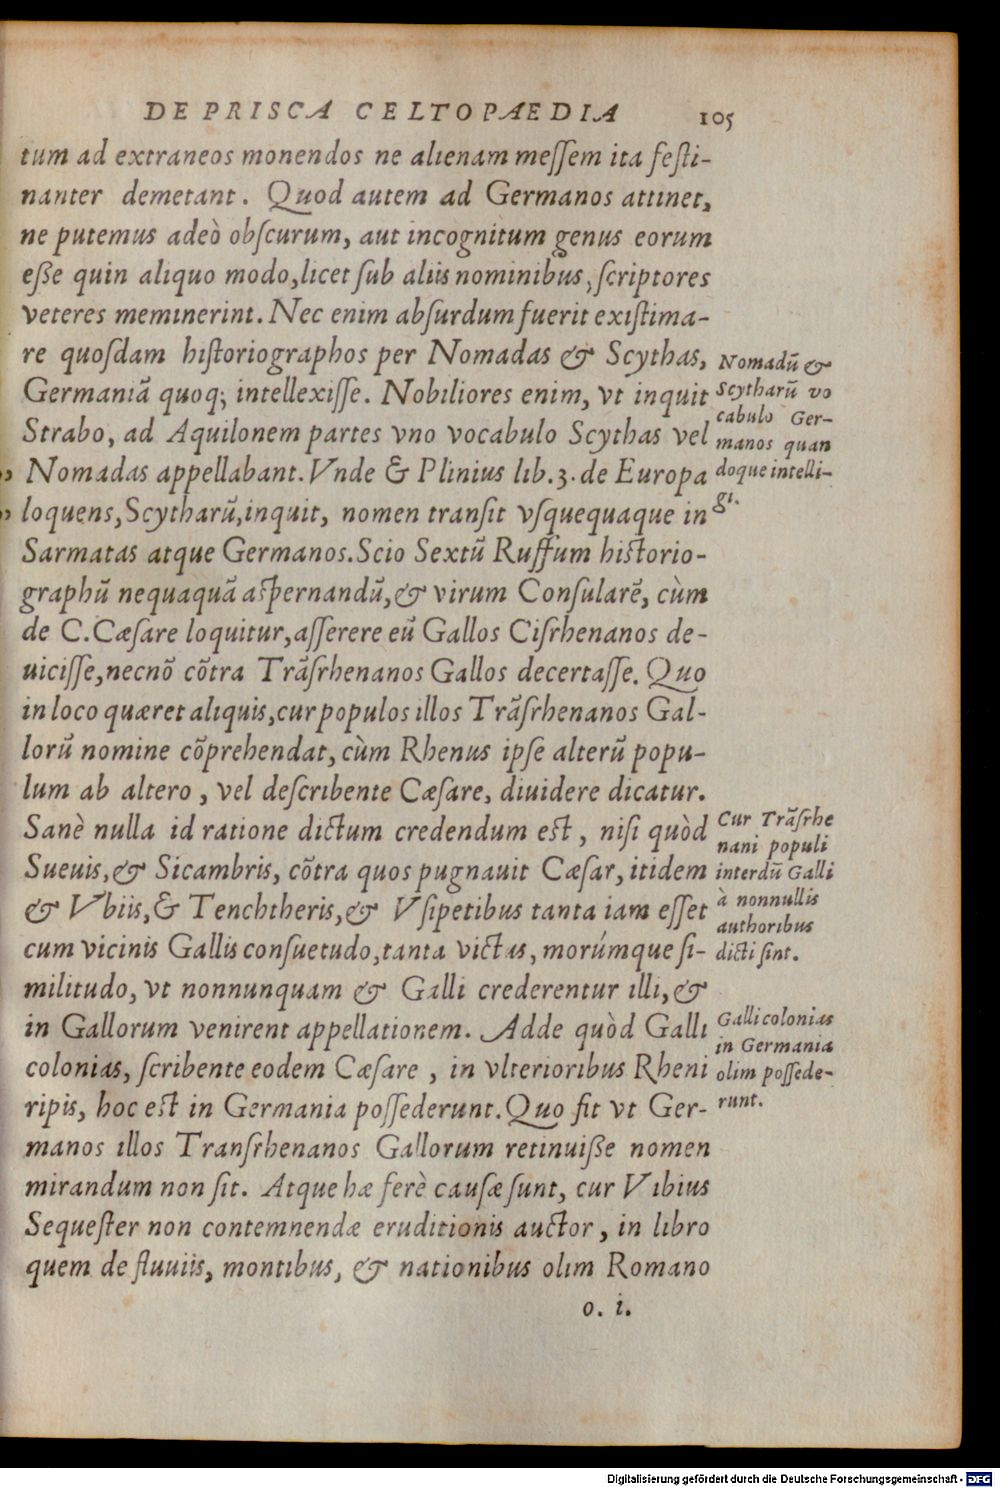 DE PRISCA CELTOPAEDIA 105
tum ad extraneos monendos ne alienam meſſem ita feſti-
nanter demetant. Quod autem ad Germanos attinet,
ne putemus adeò obſcurum, aut incognitum genus eorum
eſße quin aliquo modo, licet ſub aliis nominibus, ſcriptores
veteres meminerint. Nec enim abſurdum fuerit exiſtima-
re quoſdam hiſtoriographos per Nomadas & Scythas,
Germaniã quoq; intellexiſſe. Nobiliores enim, vt inquit
Strabo, ad Aquilonem partes vno vocabulo Scythas vel
„ Nomadas appellabant. Vnde & Plinius lib. 3. de Europa
„ loquens, Scytharũ, inquit, nomen tranſit vſquequaque in
Sarmatas atque Germanos. Scio Sextũ Ruffum hiſtorio-
graphũ nequaquã aſpernandũ, & virum Conſularẽ, cùm
de C. Cæſare loquitur, aſſerere eũ Gallos Ciſrhenanos de-
uiciſſe, necnõ cõtra Trãſrhenanos Gallos decertaſſe. Quo
in loco quæret aliquis, cur populos illos Trãſrhenanos Gal-
lorũ nomine cõprehendat, cùm Rhenus ipſe alterũ popu-
lum ab altero, vel deſcribente Cæſare, diuidere dicatur.
Sanè nulla id ratione dictum credendum eſt, niſi quòd
Sueuis, & Sicambris, cõtra quos pugnauit Cæſar, itidem
& Vbiis, & Tenchtheris, & Vſipetibus tanta iam eſſet
cum vicinis Gallis conſuetudo, tanta victus, morúmque ſi-
militudo, vt nonnunquam & Galli crederentur illi, &
in Gallorum venirent appellationem. Adde quòd Galli
colonias, ſcribente eodem Cæſare, in vlterioribus Rheni
ripis, hoc eſt in Germania poſſederunt. Quo fit vt Ger-
manos illos Tranſrhenanos Gallorum retinuiſße nomen
mirandum non ſit. Atque hæ ferè cauſæ ſunt, cur Vibius
Sequeſter non contemnendæ eruditionis auctor, in libro
quem de fluuiis, montibus, & nationibus olim Romano
o. i.
Nomadũ &
Scytharũ vo
cabulo Ger-
manos quan
doque intelli-
gi.
Cur Trãſrhe
nani populi
interdũ Galli
à nonnullis
authoribus
dicti ſint.
Galli colonias
in Germania
olim poſſede-
runt.
Digitalisierung gefördert durch die Deutsche Forschungsgemeinschaft - DFG